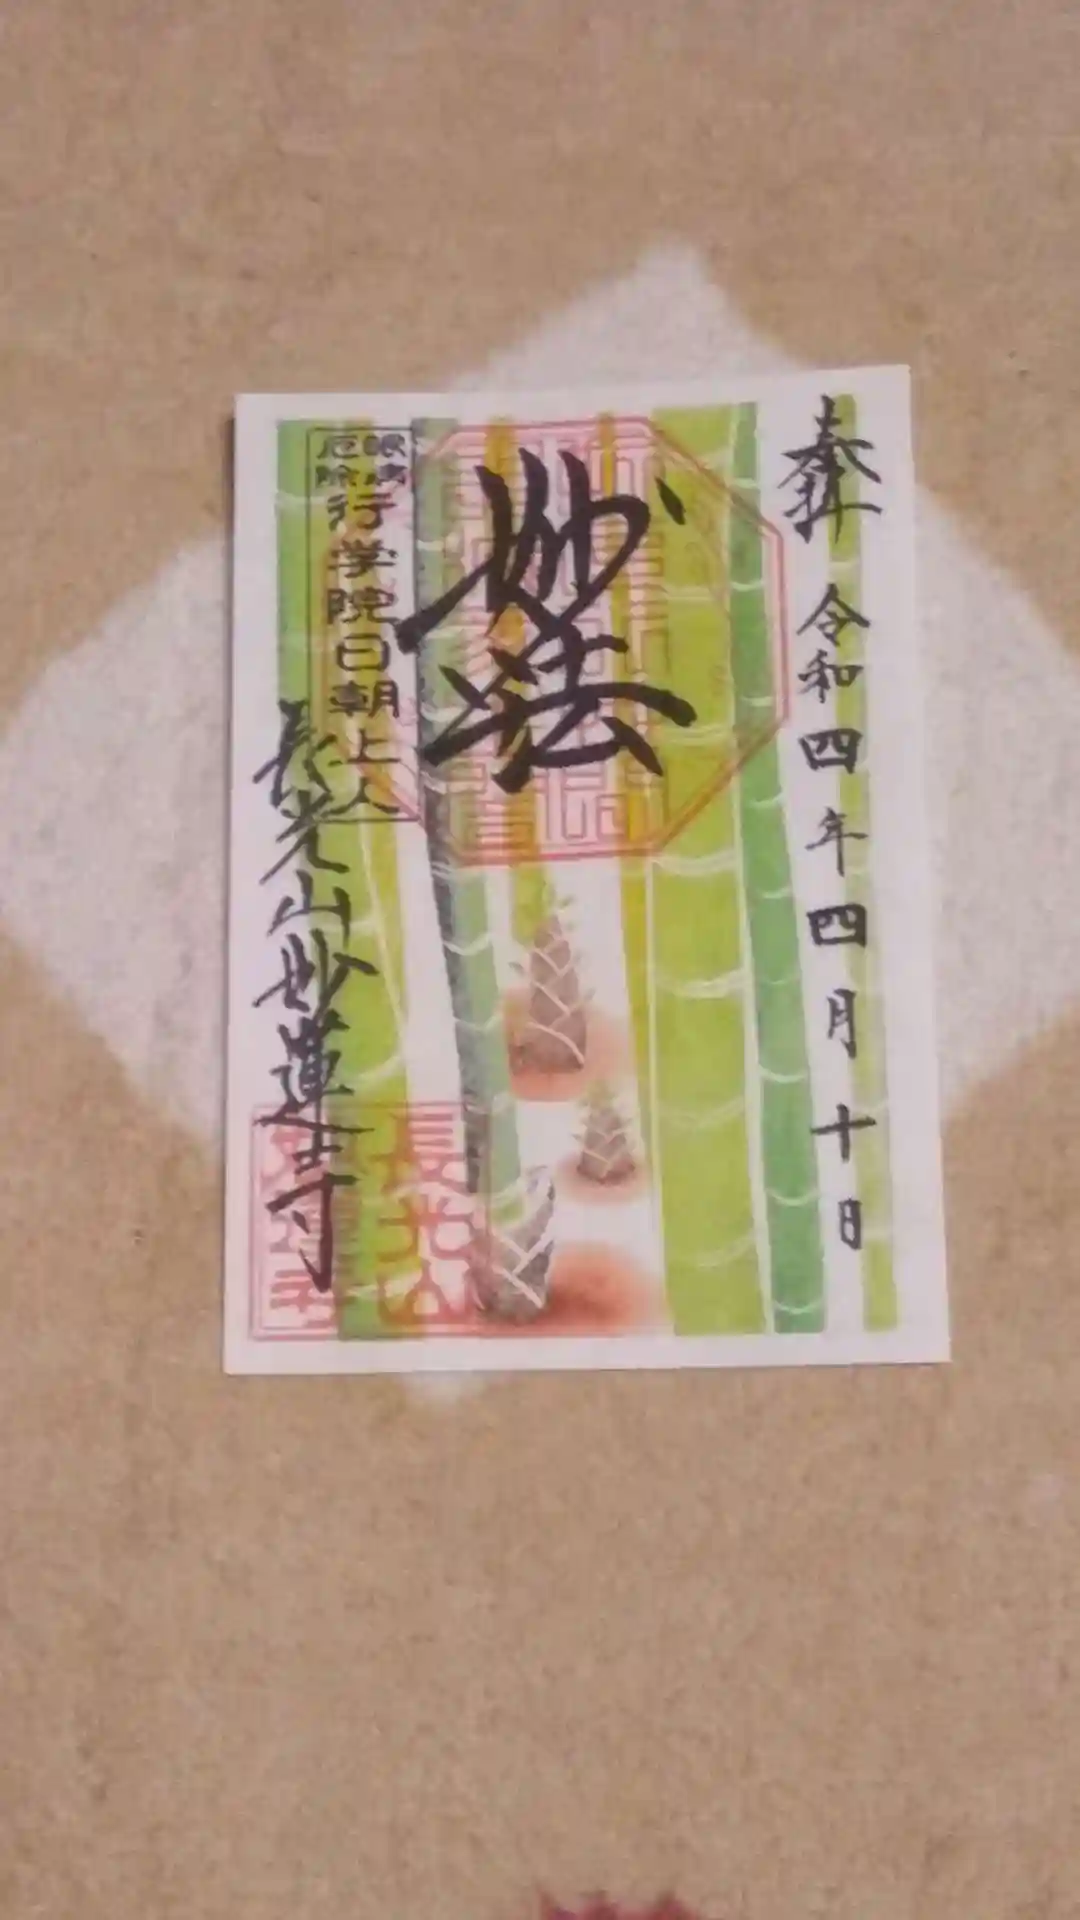 奉拝
令和四年四月十日
妙法
眼病
厄除
行学院日朝上人
長光山妙蓮寺
長光山
妙蓮寺